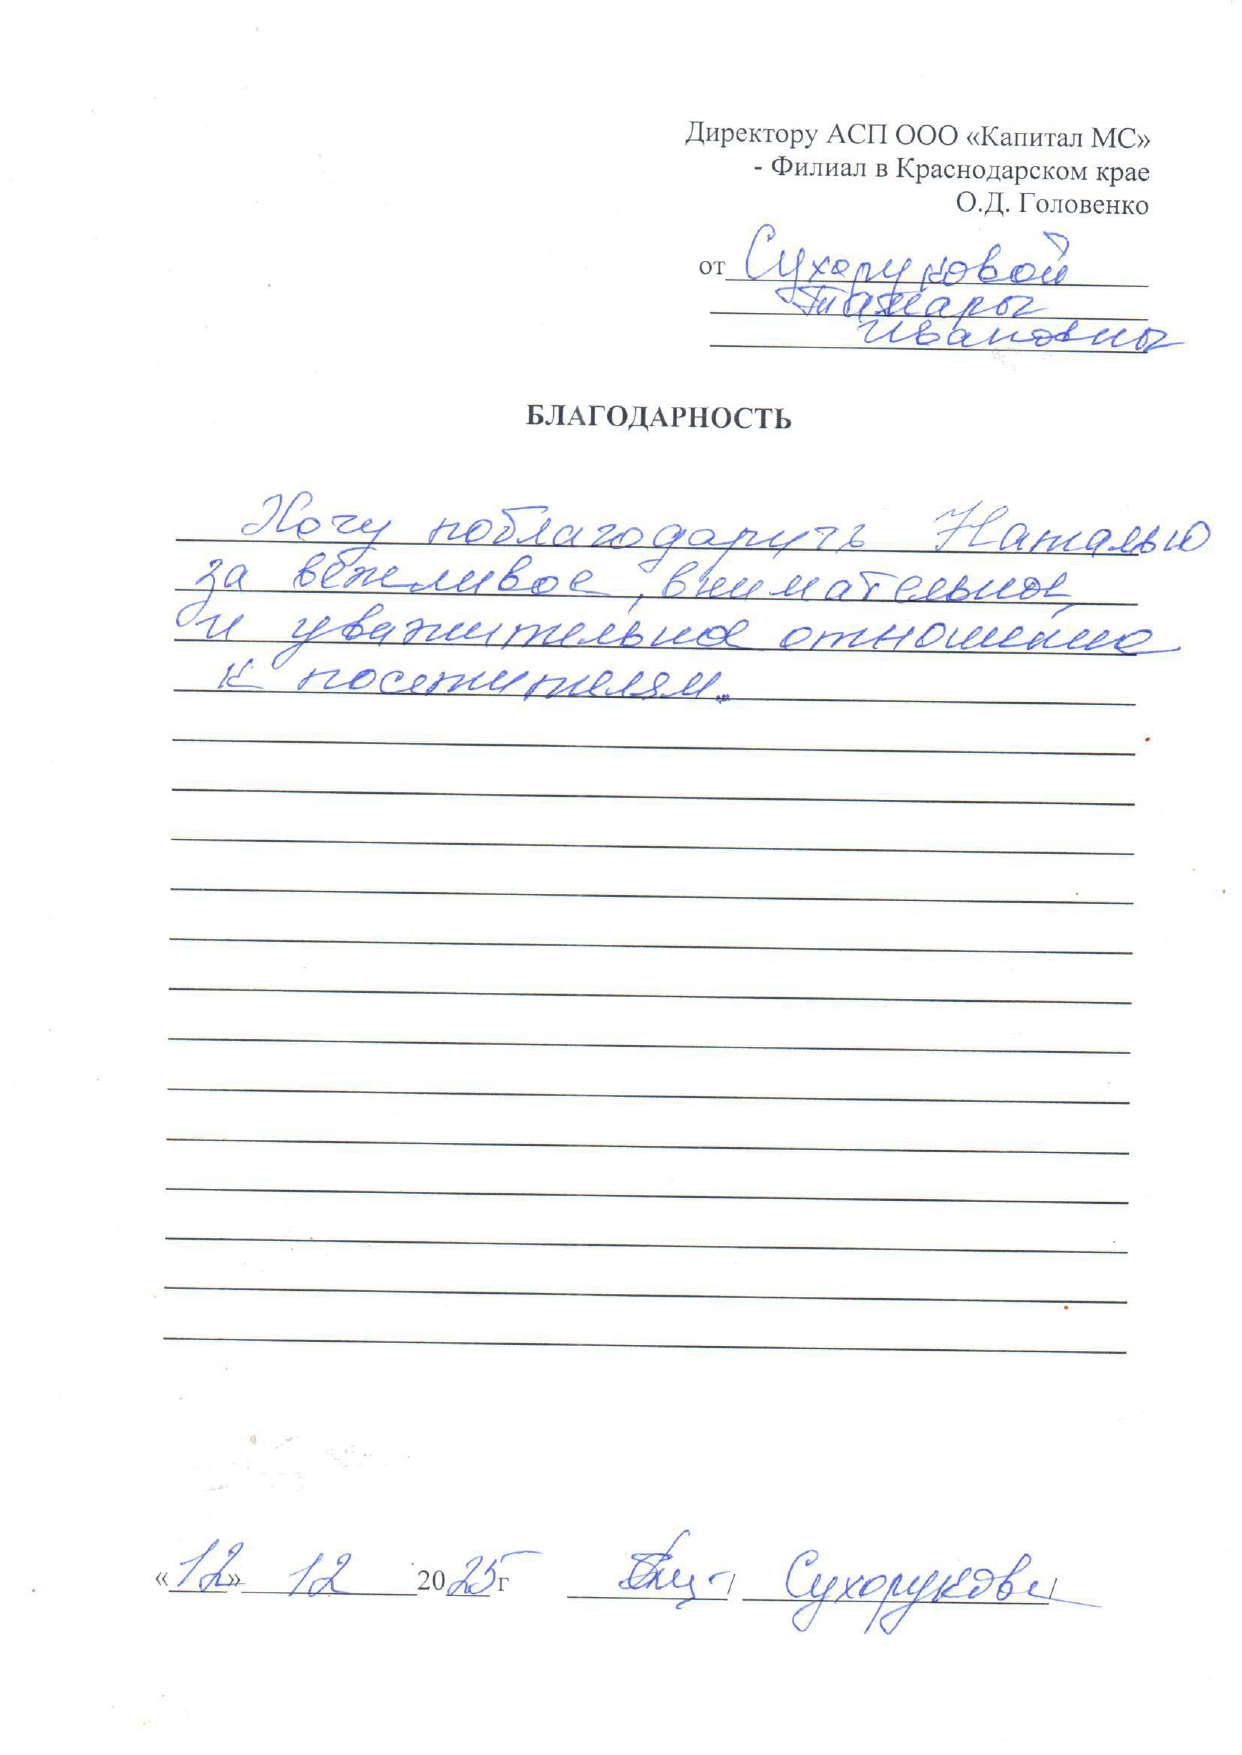 Директору АСП ООО «Капитал МС»
- Филиал в Краснодарском крае
О.Д. Головенко
от Сухоруковой
Тамары
Ивановны
БЛАГОДАРНОСТЬ
Хочу поблагодарить Наталью
за вежливое, внимательное,
и уважительное отношение
к посетителям.
«12» 12 2025 г / Сухорукова /